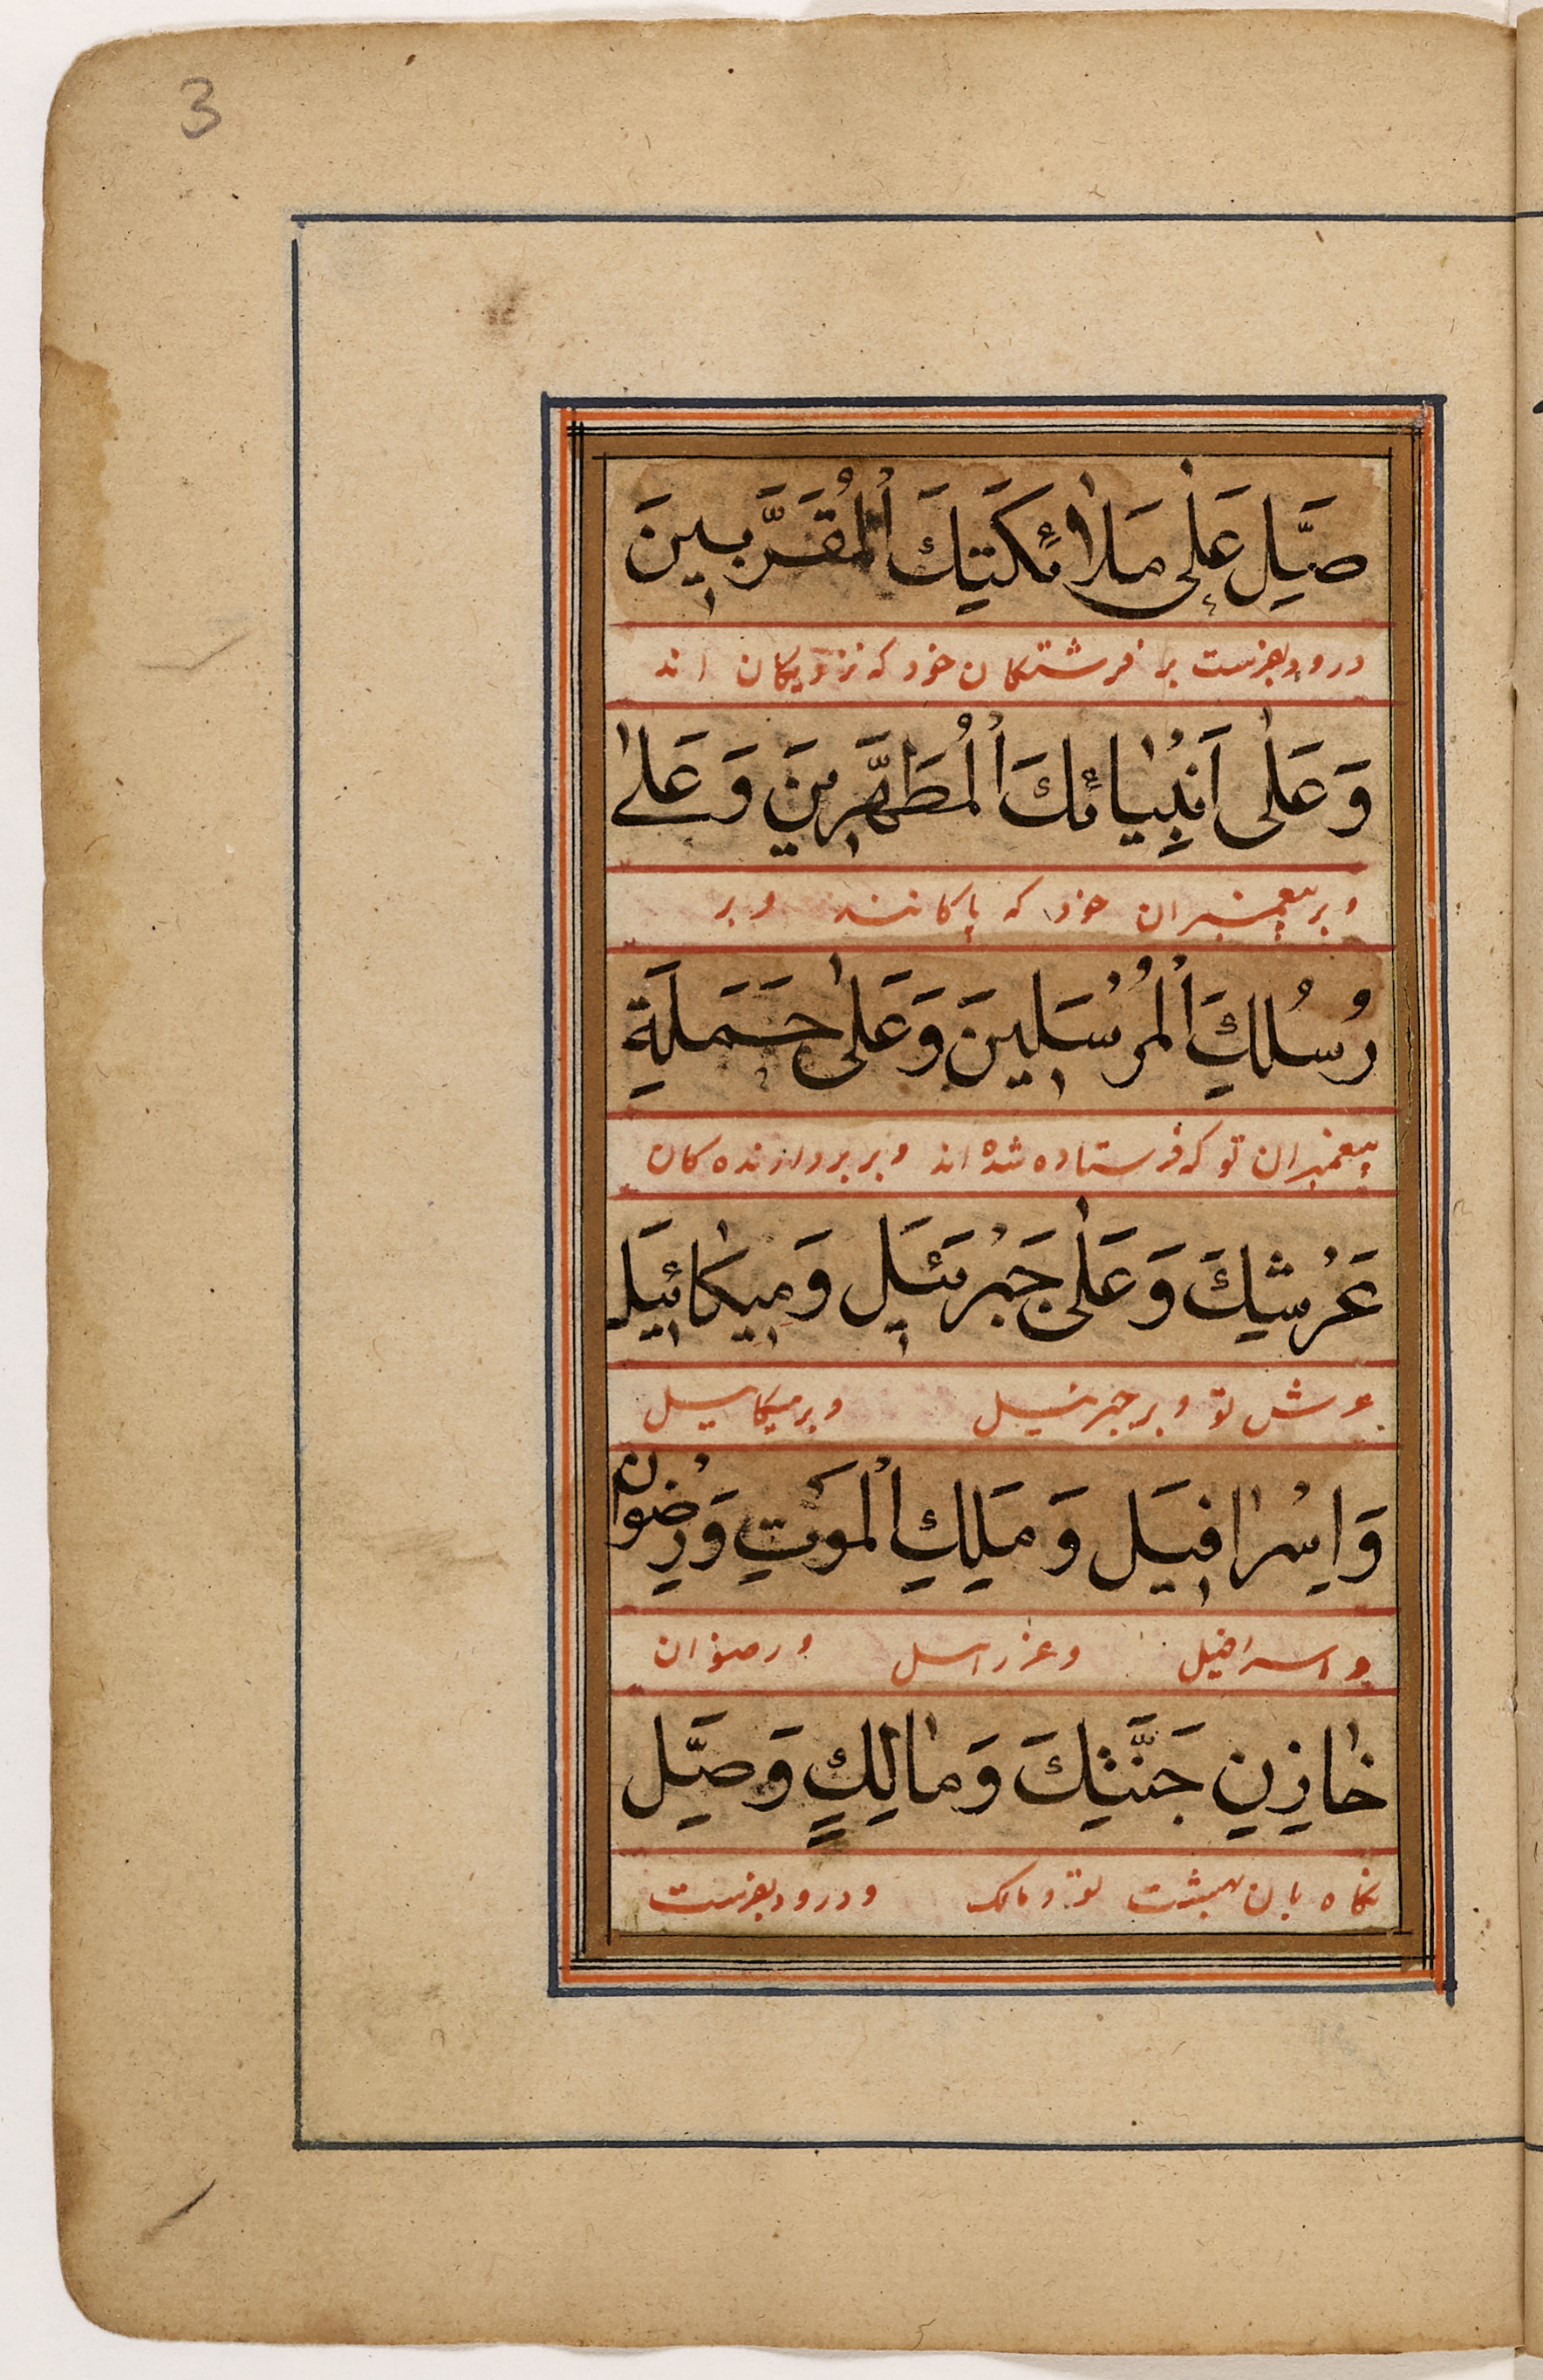 3
صَلِّ عَلٰى مَلٰائِكَتِكَ الْمُقَرَّبِينَ
درود بفرست بر فرشتكان خود كه نزديكان اند
وَعَلٰى اَنْبِيٰائِكَ الْمُطَهَّرِينَ وَعَلىٰ
و بر پيغمبران خود كه پاكانند و بر
رُسُلِكَ الْمُرْسَلِينَ وَعَلىٰ حَمَلَةِ
پيغمبران تو كه فرستاده شده اند و بر بردارنده كان
عَرْشِكَ وَعَلٰى جَبْرَئِيلَ وَمِيكٰائِيلَ
عرش تو و بر جبرئيل و بر ميكاييل
وَاِسْرٰافِيلَ وَمَلَكِ الْمَوْتِ وَرِضْوٰانَ
و اسرافيل و عزراييل و رضوان
خٰازِنِ جَنَّتِكَ وَمٰالِكٍ وَصَلِّ
نكاه بان بهشت تو و مالك و درود بفرست